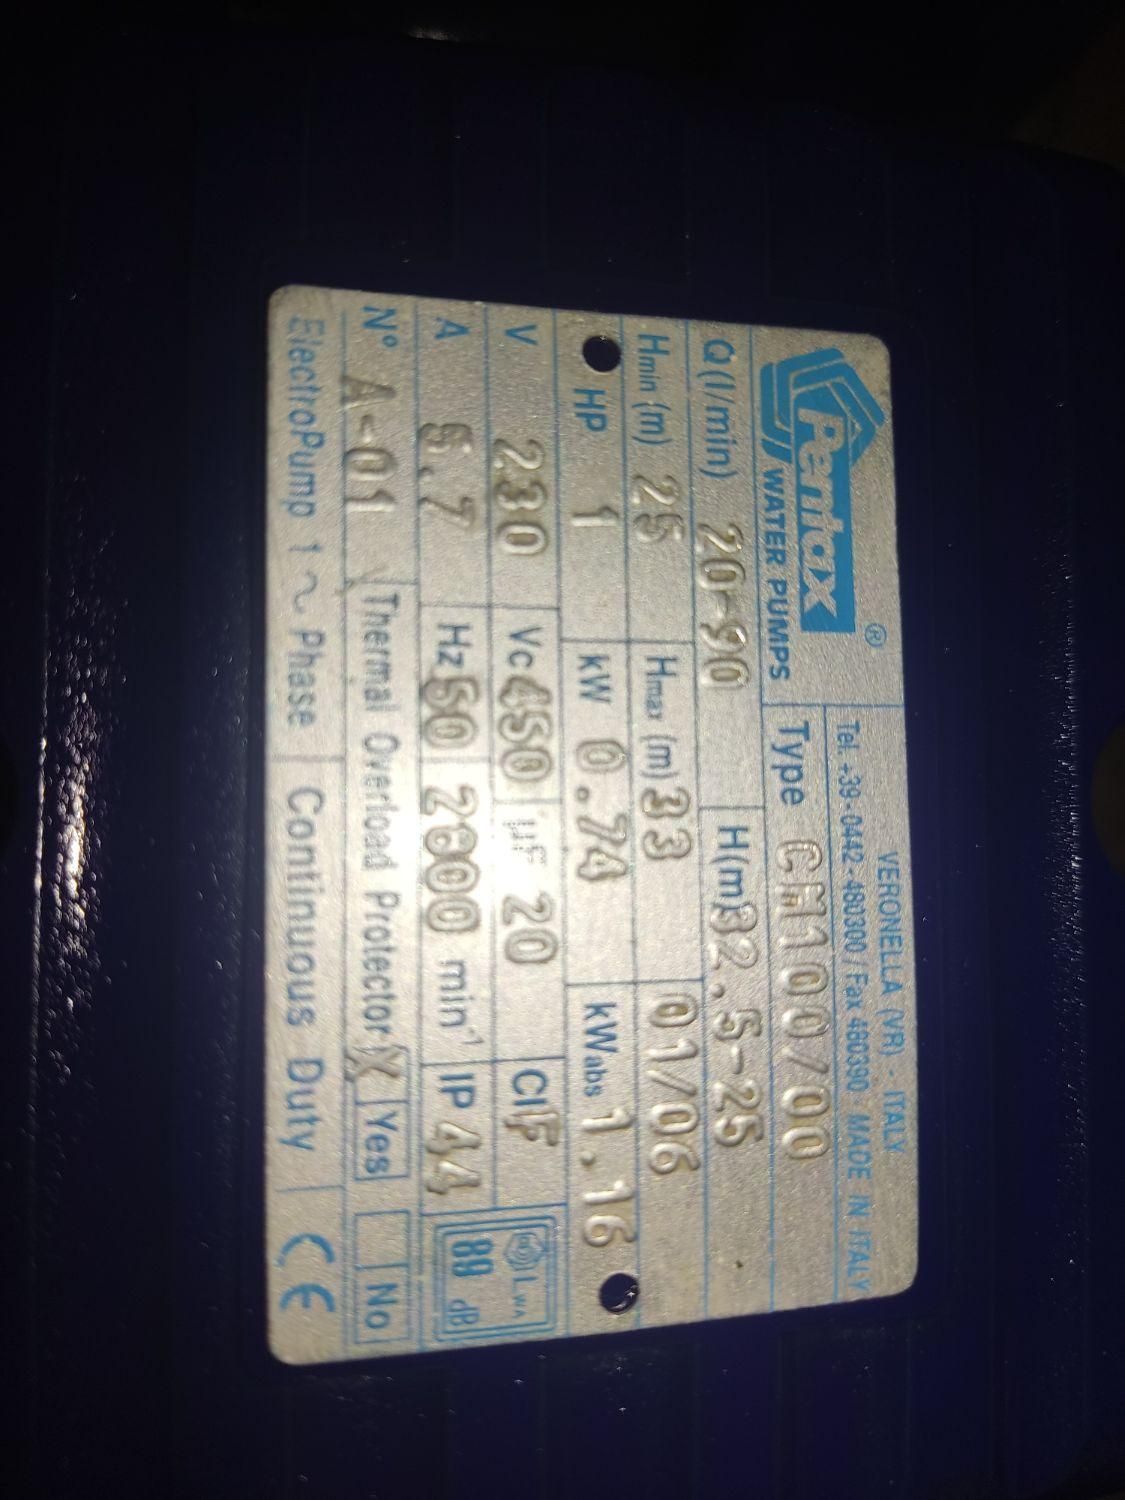 VERONELLA (VR) - ITALY
Pentax ®
WATER PUMPS
Tel. +39-0442-480300 / Fax 480390 MADE IN ITALY
Type CM100/00
Q(l/min) 20-90 H(m) 32.5-25
Hmin (m) 25 Hmax (m) 33 01/06
HP 1 kW 0.74 kWabs 1.16
V 230 Vc 450 µF 20 Cl F
A 5.7 Hz 50 2800 min⁻¹ IP 44
LWA
dB
N° A-01 Thermal Overload Protector X Yes No
ElectroPump 1 ~ Phase Continuous Duty CE